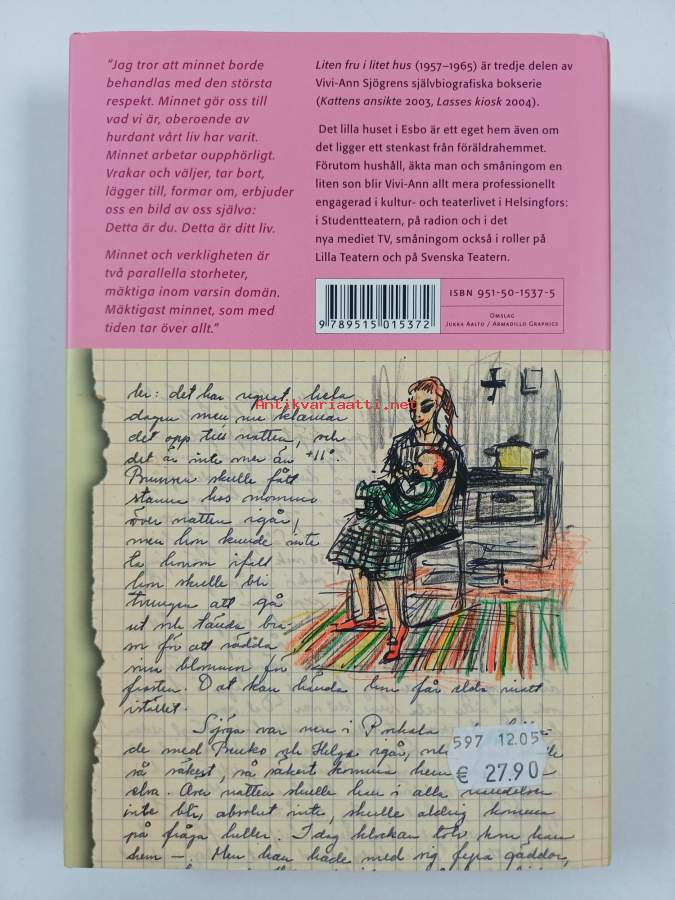 "Jag tror att minnet borde
behandlas med den största
respekt. Minnet gör oss till
vad vi är, oberoende av
hurdant vårt liv har varit.
Minnet arbetar oupphörligt.
Vrakar och väljer, tar bort,
lägger till, formar om, erbjuder
oss en bild av oss själva:
Detta är du. Detta är ditt liv.
Minnet och verkligheten är
två parallella storheter,
mäktiga inom varsin domän.
Mäktigast minnet, som med
tiden tar över allt."
Liten fru i litet hus (1957–1965) är tredje delen av
Vivi-Ann Sjögrens självbiografiska bokserie
(Kattens ansikte 2003, Lasses kiosk 2004).
Det lilla huset i Esbo är ett eget hem även om
det ligger ett stenkast från föräldrahemmet.
Förutom hushåll, äkta man och småningom en
liten son blir Vivi-Ann allt mera professionellt
engagerad i kultur- och teaterlivet i Helsingfors:
i Studentteatern, på radion och i det
nya mediet TV, småningom också i roller på
Lilla Teatern och på Svenska Teatern.
ISBN 951-50-1537-5
9 789515 015372
Omslag
Jukka Aalto / Armadillo Graphics
Antikvariaatti.net
ler: det har regnat hela
dagen men nu klarnar
det opp till natten, och
det är inte mer än +11°.
skulle fått
stanna hos mommo
över natten igår,
men hon kunde inte
ta honom ifall
hon skulle bli
tvungen att gå
ut och tända
för att rädda
sina blommor för
frosten. Det kan hända hon får elda inatt
istället.
var nere i Porkala
de med och Helge igår, och
så säkert, så säkert komma hem
elva. Över natten skulle han i alla
inte bli, absolut inte, skulle aldrig komma
på fråga heller. Idag klockan tolv kom han
hem –. Men han hade med sig fyra gäddor,
597 12.05
€ 27.90